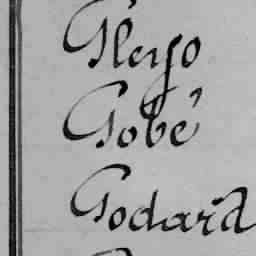 Gleyo
Gobé
Godard